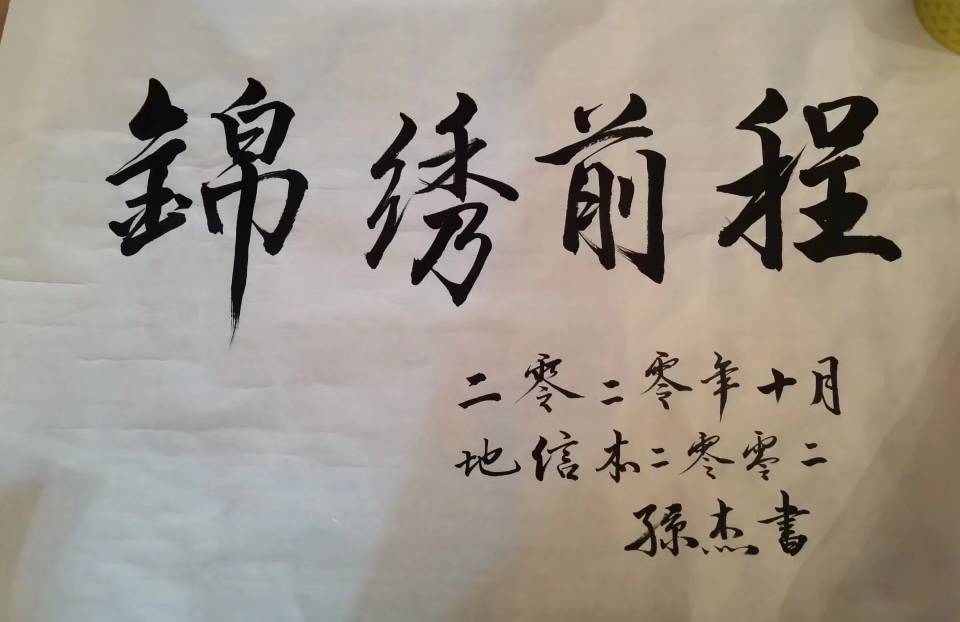 錦绣前程
二零二零年十月
地信本二零零二
孫杰書